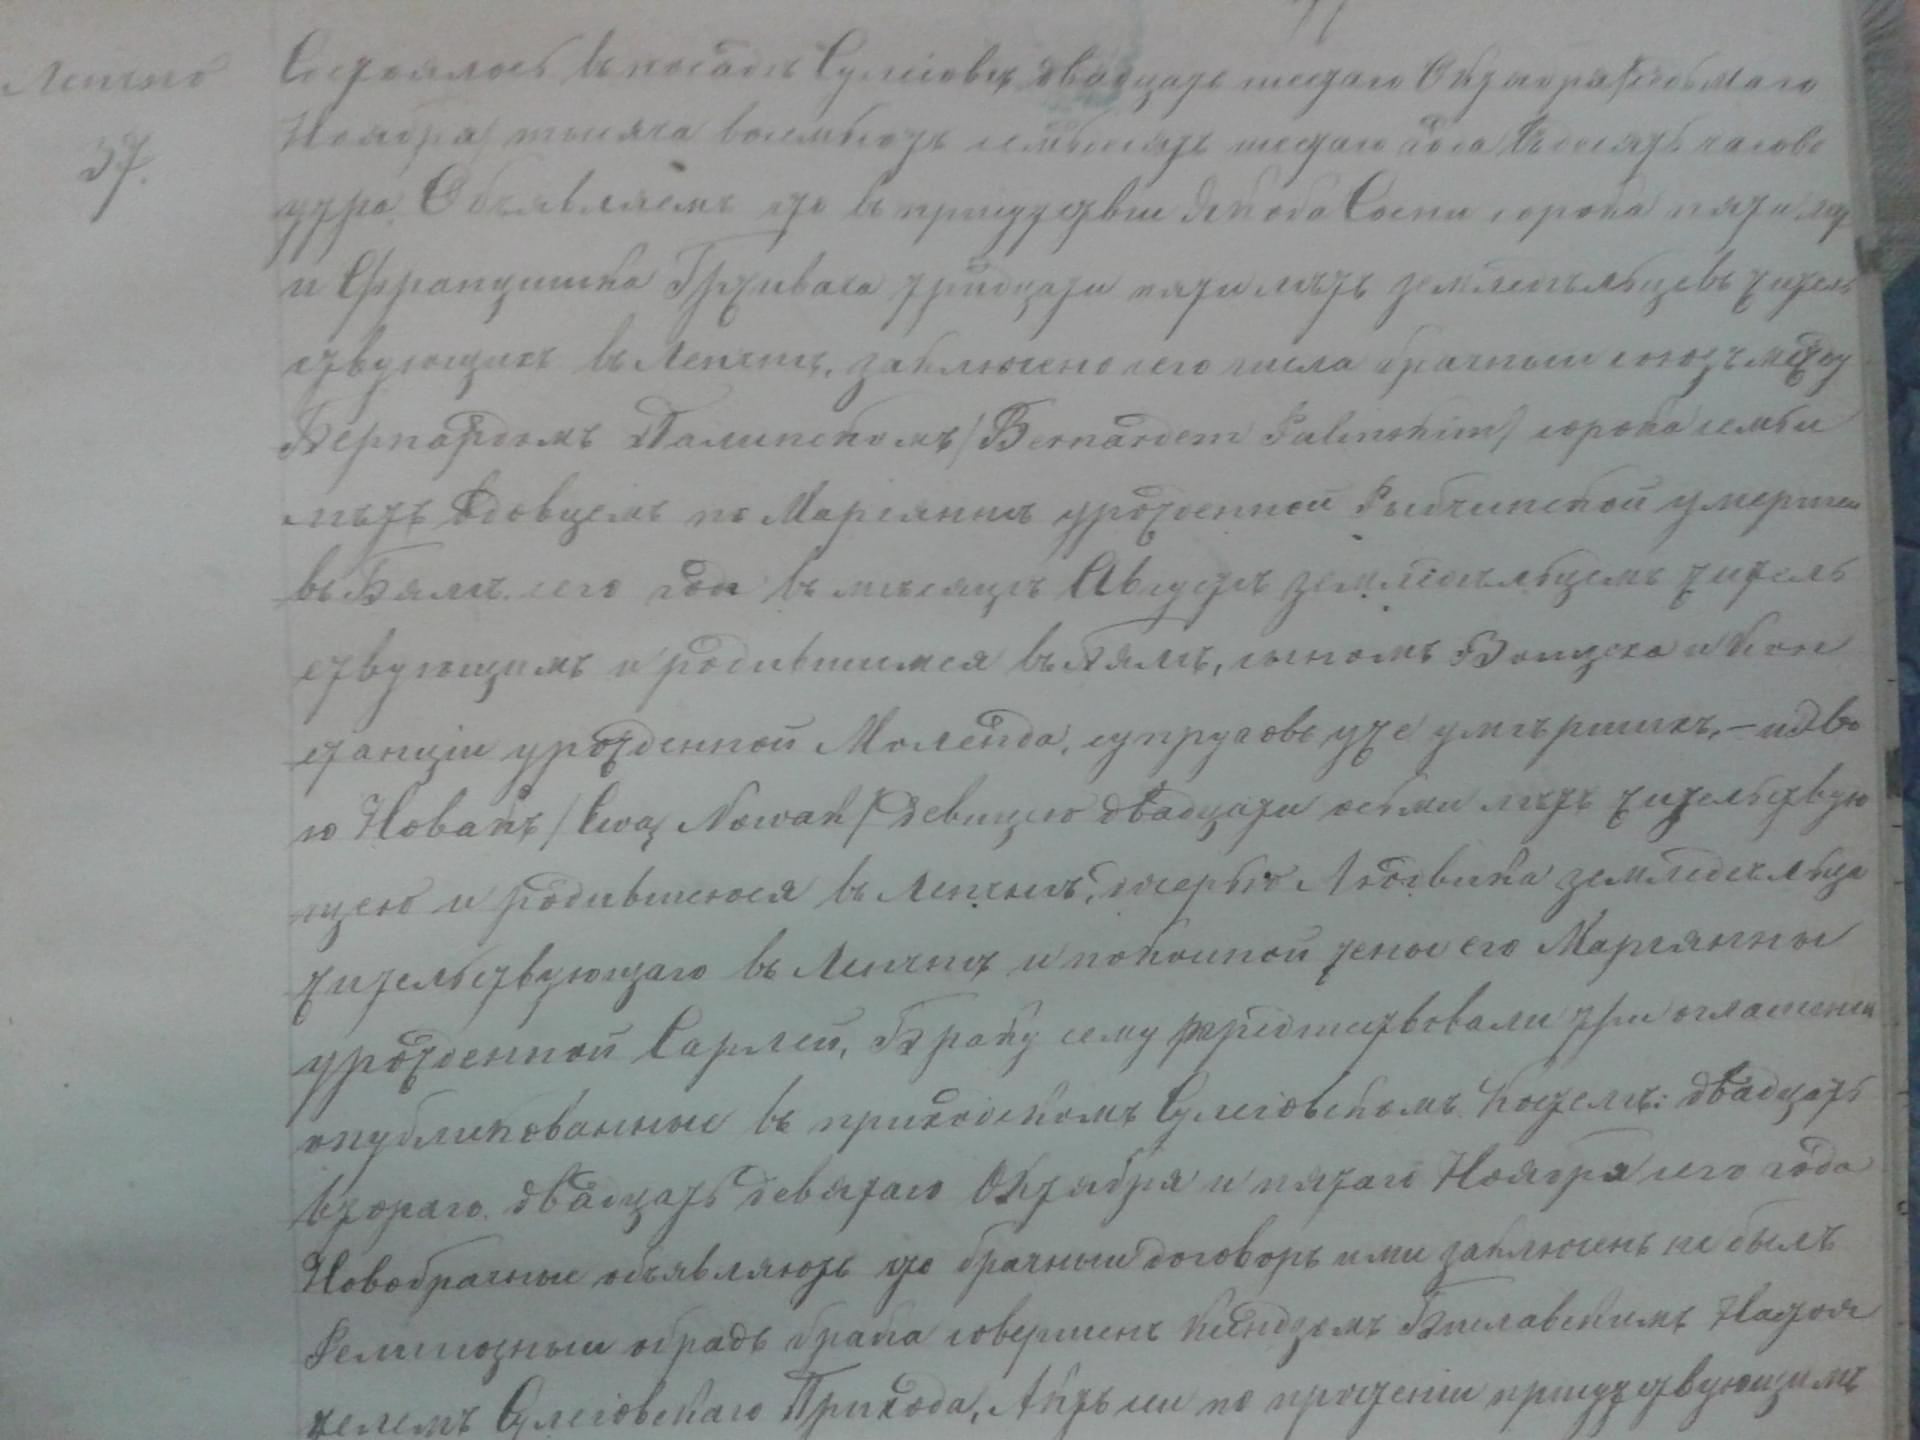 Лепчно
37.
Состоялось въ посадѣ Сулеіовѣ, двадцать шестаго Октября /осьмаго
Ноября/ тысяча восемьсотъ семьдесятъ шестаго года въ десять часовъ
утра. Объявляемъ что въ присутствіи Якоба Сосни сорока пяти лѣтъ
и Францишка Грживача тридцати пяти лѣтъ земледѣльцевъ житель
ствующихъ въ Лепчнѣ, заключено сего числа брачный союзъ между
Бернардомъ Палинскомъ /Bernardem Palinskim/ сорока семьи
лѣтъ вдовцемъ по Маріяннѣ урожденной Рыбчинской умершей
въ Бялѣ сего года въ мѣсяцѣ Августѣ земледѣльцемъ житель
ствующимъ и родившимся въ Бялѣ, сыномъ Войцеха и Кон
станціи урожденной Молéнда, супруговъ уже умѣршихъ, – и Эво
ю Новакъ /Ewą Nowak/ девицею двадцати осьми лѣтъ жительствую
щею и родившеюся въ Лепчнѣ, дочерью Людвика земледѣльца
жительствующаго въ Лепчнѣ и покойной жены его Маріянны
урожденной Сарлей, Браку сему предшествовали три оглашенія
опубликованные въ приходскомъ Сулеіовскомъ Костелѣ: двадцать
втораго, двадцать девятаго Октября и пятаго Ноября сего года
Новобрачные объявляютъ что брачный договоръ ими заключенъ не былъ
Религіозный обрядъ брака совершенъ Ксендзомъ Настоя
телемъ Сулеіовскаго Прихода, Актъ сей по прочтеніи присутствующимъ